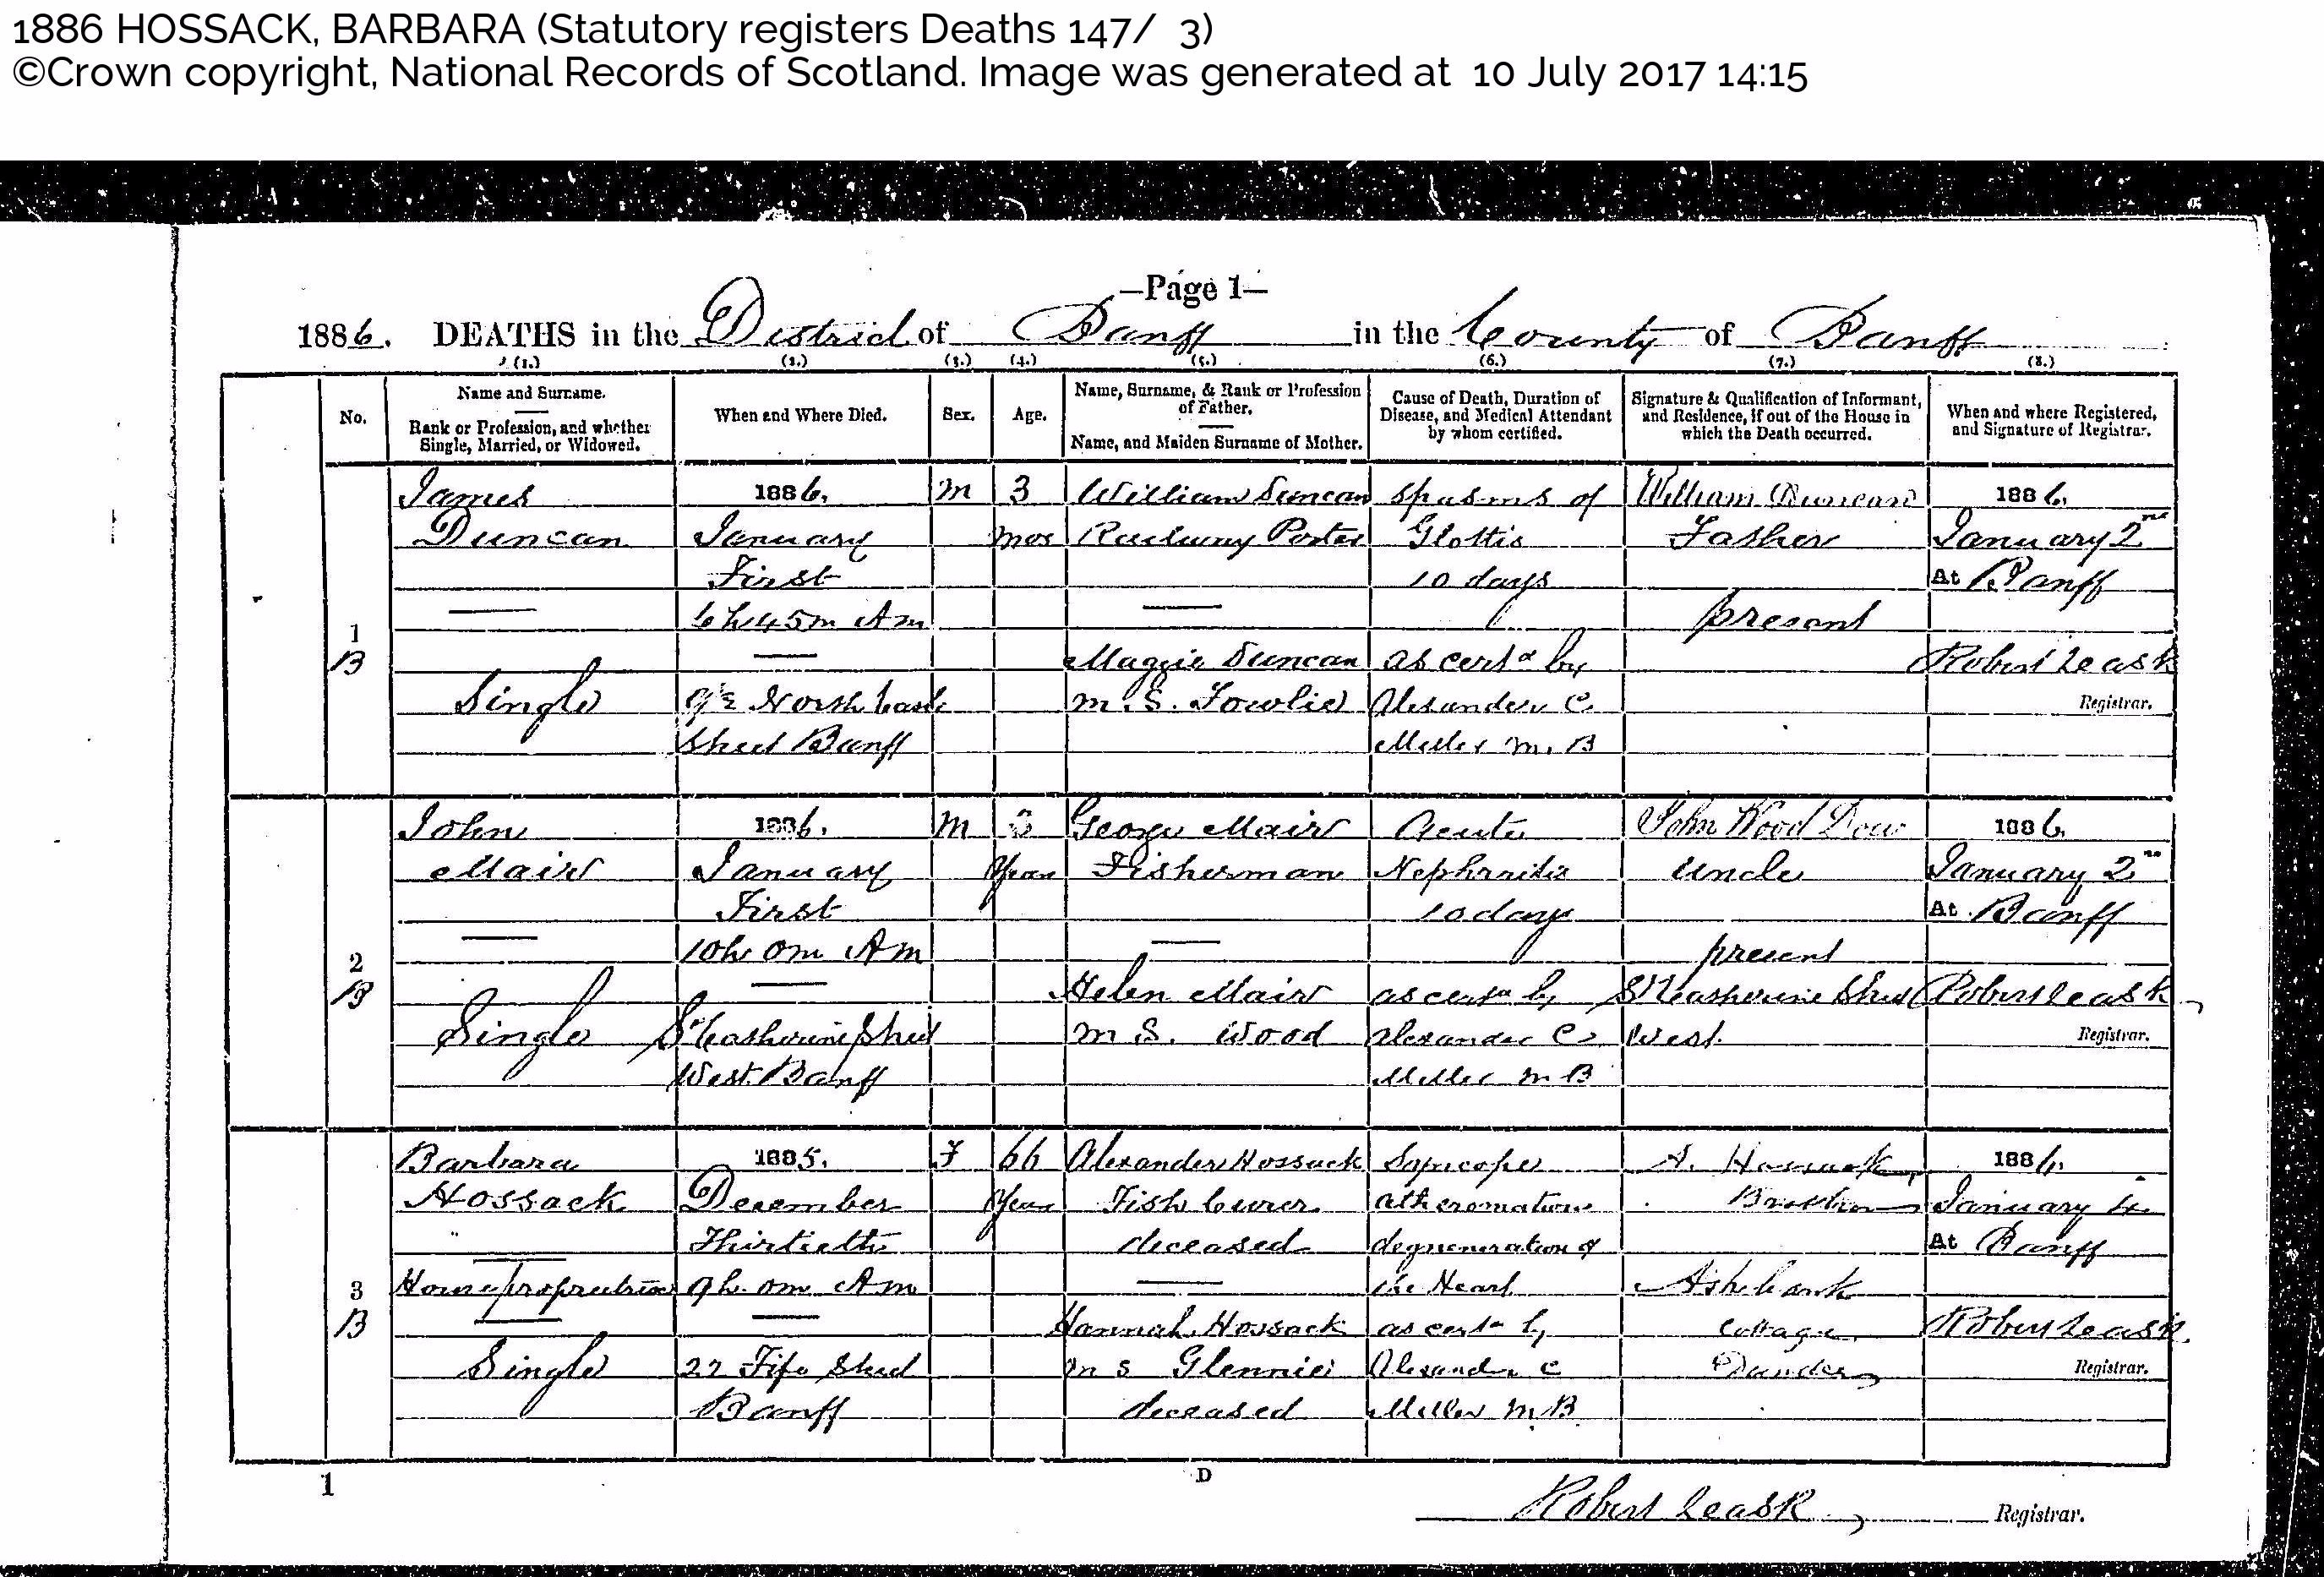 1886 HOSSACK, BARBARA (Statutory registers Deaths 147/ 3)
©Crown copyright, National Records of Scotland. Image was generated at 10 July 2017 14:15
—Page 1—
1886. DEATHS in the District of Banff in the County of Banff
(1.) (2.) (3.) (4.) (5.) (6.) (7.) (8.)
No.
Name and Surname.
Rank or Profession, and whether
Single, Married, or Widowed.
When and Where Died.
Sex.
Age.
Name, Surname, & Rank or Profession
of Father.
Name, and Maiden Surname of Mother.
Cause of Death, Duration of
Disease, and Medical Attendant
by whom certified.
Signature & Qualification of Informant,
and Residence, if out of the House in
which the Death occurred.
When and where Registered,
and Signature of Registrar.
1
B
James
Duncan
Single
1886.
January
First
6h 45m AM
9½ North Castle
Street Banff
M
3
mos
William Duncan
Railway Porter
Maggie Duncan
m.S. Fowlie
Spasms of
Glottis
10 days
as certd by
Alexander C.
Miller M.B
William Duncan
Father
present
1886.
January 2nd
At Banff
Robert Leask
Registrar.
2
B
John
Mair
Single
1886.
January
First
10h 0m AM
St Catherine Street
West Banff
M
3
Years
George Mair
Fisherman
Helen Mair
m S. Wood
Acute
Nephraitis
10 days
as certd by
Alexander C
Miller M B
John Wood Dow
Uncle
present
St Catherine Street
West.
1886.
January 2nd
At Banff
Robert Leask
Registrar.
3
B
Barbara
Hossack
House proprietrix
Single
1885.
December
Thirtieth
9h. 0m AM
22 Fife Street
Banff
F
66
Years
Alexander Hossack
Fish Curer
deceased
Hannah Hossack
m s Glennie
deceased
Syncope
atheromatous
degeneration of
the Heart
as certd by
Alexander C
Miller M.B.
A. Hossack,
Brother
Ashbank
Cottage
Dundee
1886.
January 4.
At Banff
Robert Leask
Registrar.
1
D
Robert Leask, Registrar.